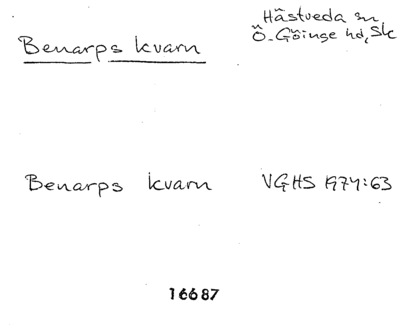 Hästveda sn
Benarps kvarn
Ö. Göinge hd, Sk
Benarps kvarn VGHS 1974:63
16687